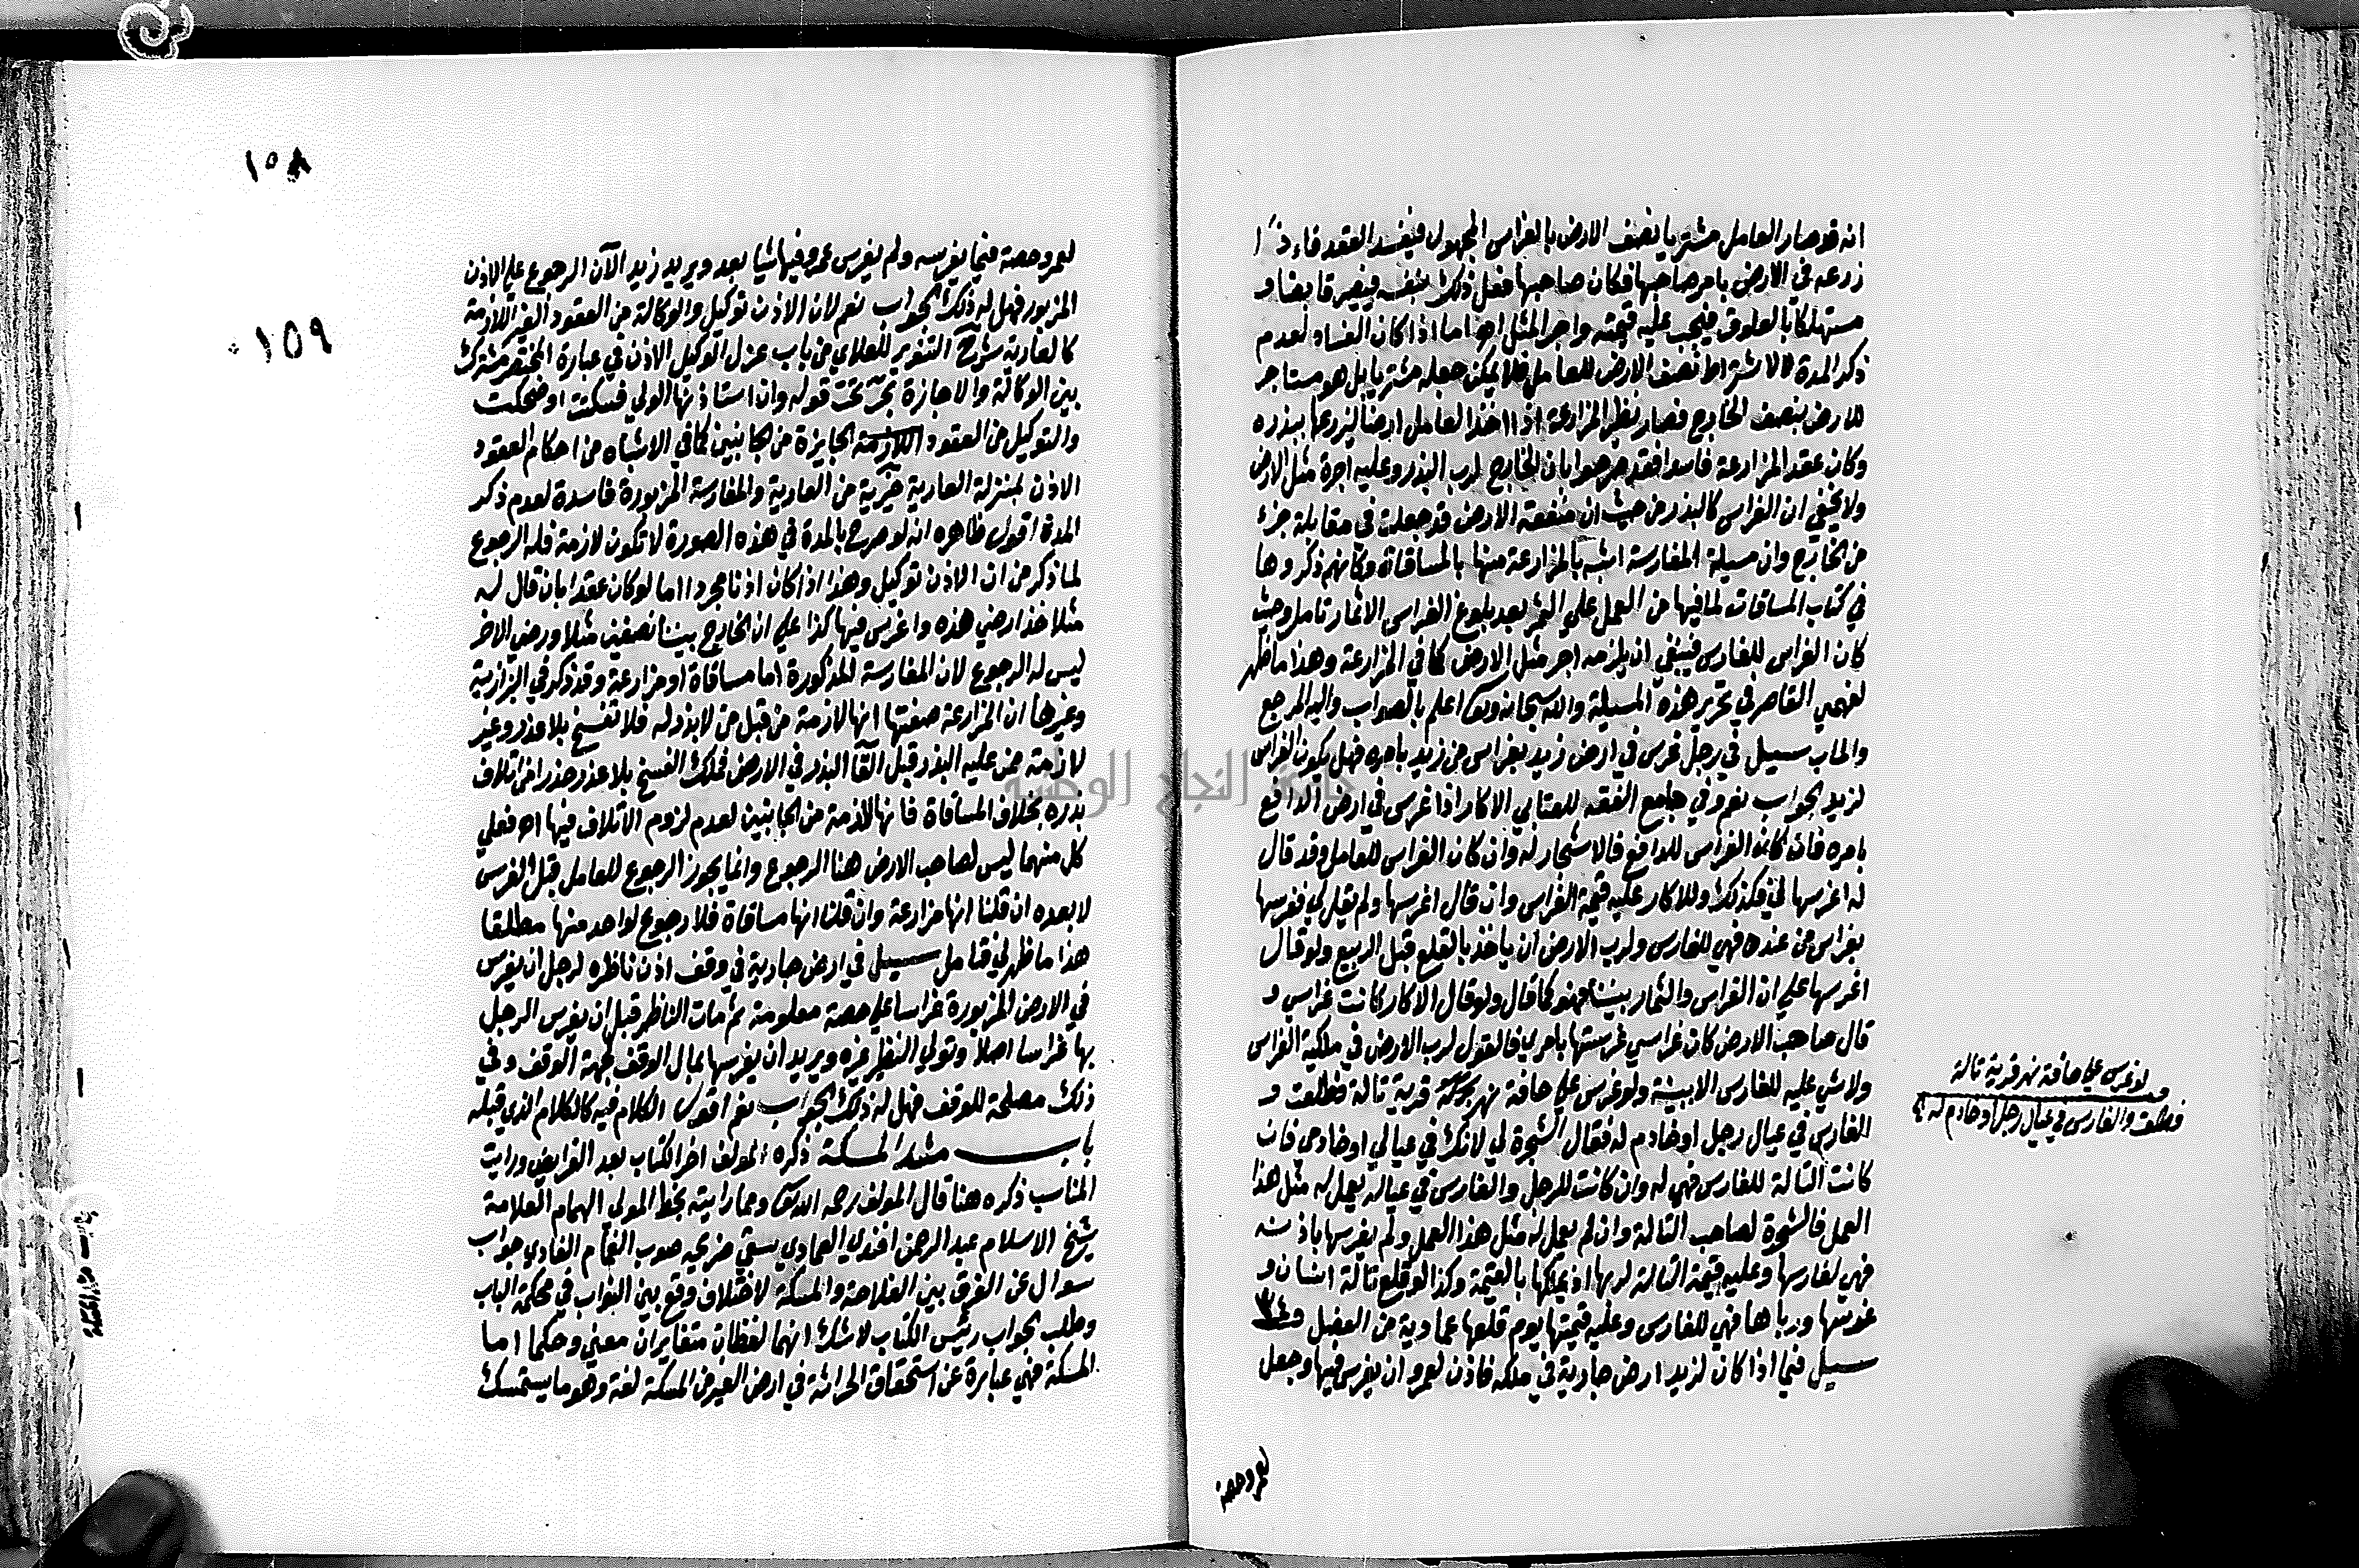 انه قد صار العامل مشتريا نصف الارض بالغراس المجهول فيفسد العقد فاذا
زرعه في الارض بامر صاحبها فكان صاحبها فعل ذلك بنفسه فيصير قابضا و
مستهلكا بالعلوق فيجب عليه قيمته واجر المثل اهـ اما اذا كان الفساد لعدم
ذكر المدة لا لاشتراط نصف الارض للعامل فلا يمكن جعله مشتريا بل هو مستاجر
للارض بنصف الخارج فصار نظير المزارعة اذا اخذ العامل ارضا ليزرعها ببذره
وكان عقد المزارعة فاسدا فقد صرحوا بان الخارج لرب البذر وعليه اجرة مثل الارض
ولا يخفي ان الغراس كالبذر من حيث ان منفعة الارض قد جعلت في مقابلة جزء
من الخارج وان مسيلة المغارسة اشبه بالمزارعة منها بالمساقاة وكانهم ذكروها
في كتاب المساقات لما فيها من العمل علي الثمر بعد بلوغ الغراس الاثمار تامل وحيث
كان الغراس للغارس فينبغي ان يلزمه اجر مثل الارض كما في المزارعة وهذا ما ظهر
لفهمي القاصر في تحرير هذه المسيلة والله سبحانه وتعا اعلم بالصواب واليه المرجع
والماب سيل في رجل غرس في ارض زيد بغراس من زيد بامره فهل يكون الغراس
لزيد الجواب نعم وفي جامع الفقه للعتابي الاكار اذا غرس في ارض الدافع
بامره فان كان الغراس للدافع فالاشجار له وان كان الغراس للعامل وقد قال
له اغرسها لي فكذلك وللاكار عليه قيمة الغراس وان قال اغرسها ولم يقل لي فغرسها
بغراس من عنده فهي للغارس ولرب الارض ان ياخذ بالقلع قبل الربيع ولو قال
اغرسها علي ان الغراس والثمار بيننا فهو كما قال ولو قال الاكار كانت غراسي و
قال صاحب الارض كان غراسي غرستها بامري فالقول لرب الارض في ملكية الغراس
ولا شي عليه للغارس الا ببينة ولو غرس علي حافة نهر قرية تالة فطلعت و
الغارس في عيال رجل او خادم له فقال الشجرة لي لانك في عيالي او خادمي فان
كانت التالة للغارس فهي له وان كانت للرجل والغارس في عياله يعمل له مثل هذا
العمل فالشجرة لصاحب التالة وان لم يعمل له مثل هذا العمل ولم يغرسها باذنه
فهي لغارسها وعليه قيمة التالة لربها اذ يملكها بالقيمة وكذا لو قلع تالة انسان و
غرسها ورباها فهي للغارس وعليه قيمتها يوم قلعها عمادية من الفصل
سيل فيما اذا كان لزيد ارض جارية في ملكه فاذن لعمرو ان يغرس فيها وجعل
لعمرو حصة
ولو غرس علي حافة نهر قرية تالة
فطلعت والغارس في عيال رجل او خادم له
١٥٨
١٥٩
لعمرو حصة فيما يغرسه ولم يغرس عمرو فيها شيا بعد ويريد زيد الآن الرجوع علي الاذن
المزبور فهل له ذلك الجواب نعم لان الاذن توكيل والوكالة من العقود الغير اللازمة
كالعارية شرح التنوير للعلاي من باب عزل الوكيل الاذن في عبارة المختصر مشترك
بين الوكالة والاجازة بحر تحت قوله وان استاذنها الولي فسكتت او ضحكت
والتوكيل من العقود الجايزة من الجانبين كما في الاشباه من احكام العقود
الاذن بمنزلة العارية خيرية من العارية والمغارسة المزبورة فاسدة لعدم ذكر
المدة اقول ظاهره انه لو صرح بالمدة في هذه الصورة لا تكون لازمة فله الرجوع
لما ذكر من ان الاذن توكيل وهذا اذا كان اذنا مجردا اما لو كان عقدا بان قال له
مثلا خذ ارضي هذه واغرس فيها كذا علي ان الخارج بيننا نصفين مثلا ورضي الاخر
ليس له الرجوع لان المغارسة المذكورة اما مساقاة او مزارعة وقد ذكر في البزازية
وغيرها ان المزارعة صفتها انها لازمة من قبل من لا بذر له فلا تفسخ بلا عذر وغير
لازمة ممن عليه البذر قبل القا البذر في الارض فملك الفسخ بلا عذر حذرا من اتلاف
بذره بخلاف المساقاة فانها لازمة من الجانبين لعدم لزوم الاتلاف فيها اهـ فعلي
كل منهما ليس لصاحب الارض هنا الرجوع وانما يجوز الرجوع للعامل قبل الغرس
لا بعده ان قلنا انها مزارعة وان قلنا انها مساقاة فلا رجوع لواحد منها مطلقا
هذا ما ظهر لي فتامل سيل في ارض جارية في وقف اذن ناظره لرجل ان يغرس
في الارض المزبورة غراسا علي حصة معلومة ثم مات الناظر قبل ان يغرس الرجل
بها غراسا اصلا وتولي النظر غيره ويريد ان يغرسها بمال الوقف لجهة الوقف وفي
ذلك مصلحة للوقف فهل له ذلك الجواب نعم اقول الكلام فيه كالكلام الذي قبله
باب مشد المسكة ذكره المولف اخر الكتاب بعد الفرايض ورايت
المناسب ذكره هنا قال المولف رحمه الله تعا ومما رايته بخط المولي الهمام العلامة
شيخ الاسلام عبد الرحمن افندي العمادي سقي ضريحه صوب الغمام الغادي جواب
سوال عن الفرق بين الفلاحة والمسكة لاختلاف وقع بين النواب في محكمة الباب
وطلب الجواب رئيس الكتاب لا شك انهما لفظان متغايران معني وحكما اما
المسكة فهي عبارة عن استحقاق الحراثة في ارض الغير من المسكة لغة وهو ما يستمسك
باب مشد المسكة
جامعة النجاح الوطنية